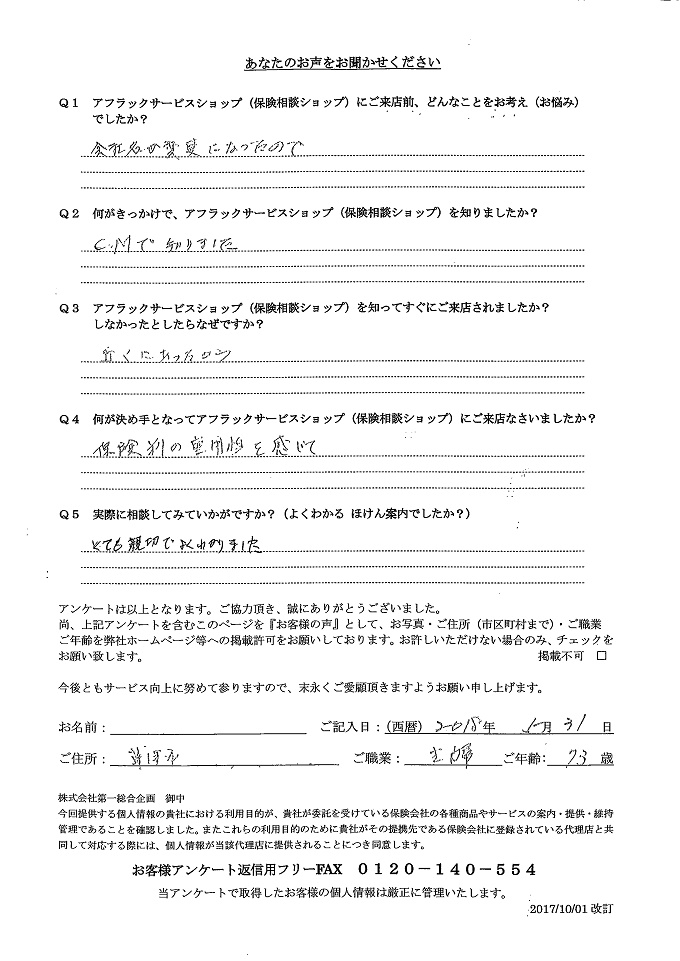 あなたのお声をお聞かせください
Q1 アフラックサービスショップ（保険相談ショップ）にご来店前、どんなことをお考え（お悩み）
でしたか？
会社名が変更になったので
Q2 何がきっかけで、アフラックサービスショップ（保険相談ショップ）を知りましたか？
C.Mで知りました
Q3 アフラックサービスショップ（保険相談ショップ）を知ってすぐにご来店されましたか？
しなかったとしたらなぜですか？
近くにあったから
Q4 何が決め手となってアフラックサービスショップ（保険相談ショップ）にご来店なさいましたか？
保険 の 性を感じて
Q5 実際に相談してみていかがですか？（よくわかる ほけん案内でしたか？）
とても親切でよくわかりました
アンケートは以上となります。ご協力頂き、誠にありがとうございました。
尚、上記アンケートを含むこのページを『お客様の声』として、お写真・ご住所（市区町村まで）・ご職業
ご年齢を弊社ホームページ等への掲載許可をお願いしております。お許しいただけない場合のみ、チェックを
お願い致します。 掲載不可 □
今後ともサービス向上に努めて参りますので、末永くご愛顧頂きますようお願い申し上げます。
お名前： ご記入日：（西暦）2018年 5月 31日
ご住所： ご職業： 主婦 ご年齢： 73 歳
株式会社第一総合企画 御中
今回提供する個人情報の貴社における利用目的が、貴社が委託を受けている保険会社の各種商品やサービスの案内・提供・維持
管理であることを確認しました。またこれらの利用目的のために貴社がその提携先である保険会社に登録されている代理店と共
同して対応する際には、個人情報が当該代理店に提供されることにつき同意します。
お客様アンケート返信用フリーFAX 0120－140－554
当アンケートで取得したお客様の個人情報は厳正に管理いたします。
2017/10/01 改訂